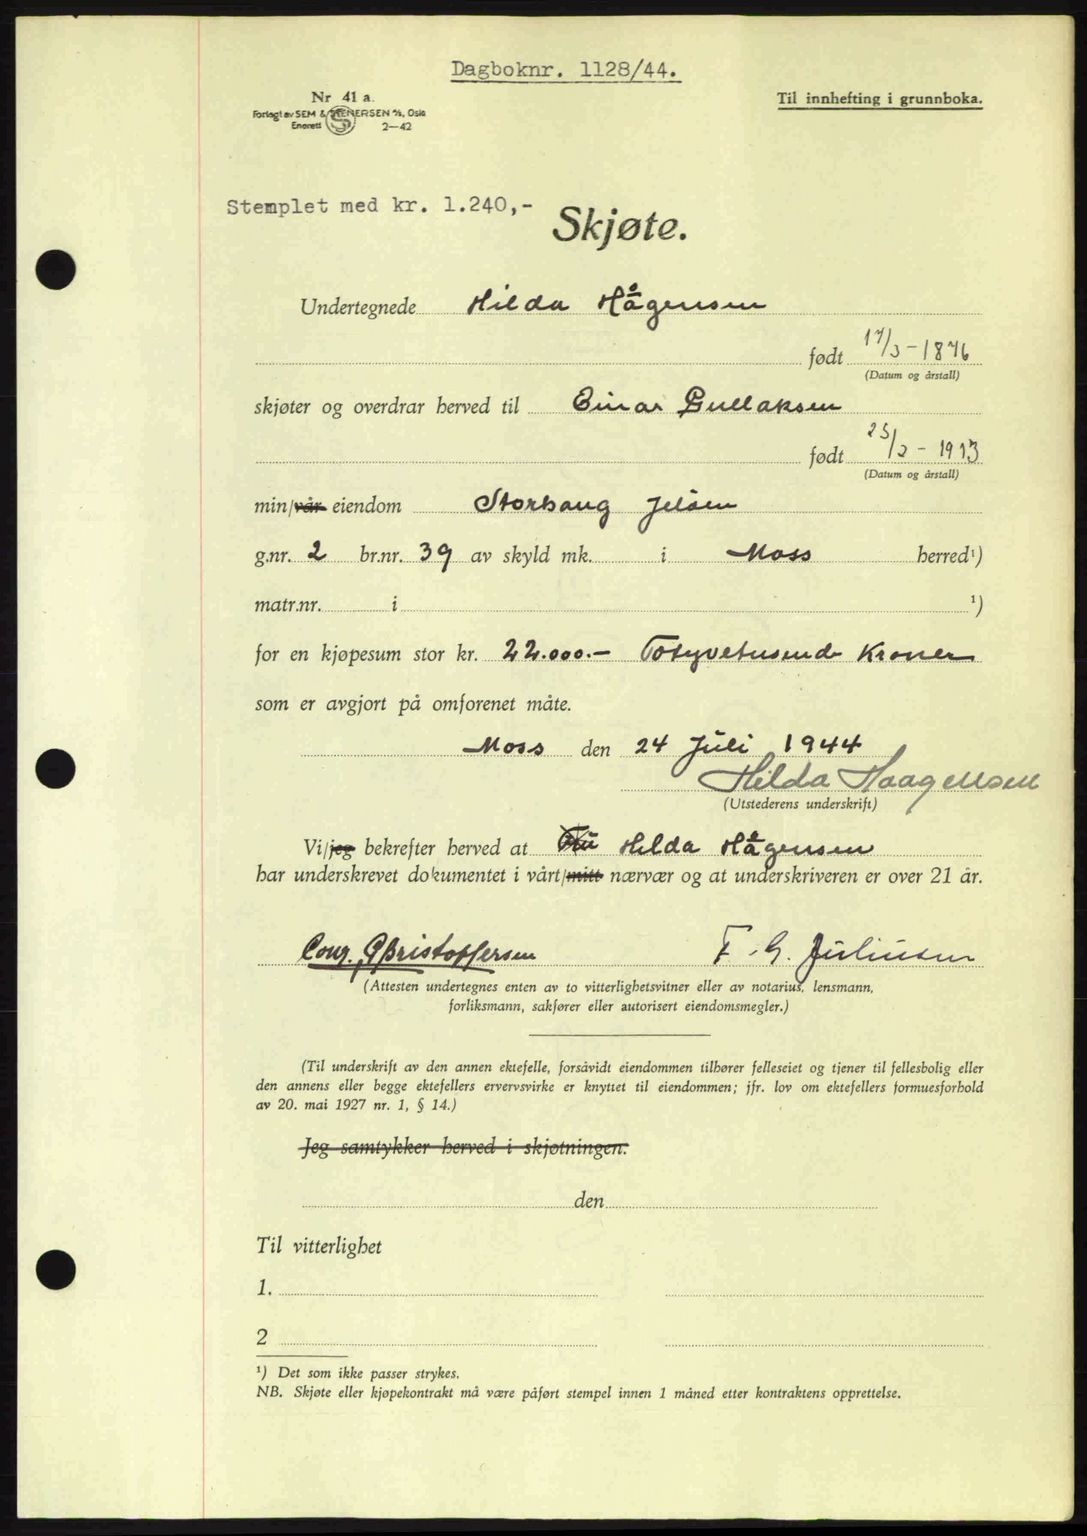 Dagboknr. 1128/44.
Nr 41 a.
Forlagt av SEM & STENERSEN A/S, Oslo
Enerett 2—42
Til innhefting i grunnboka.
Stemplet med kr. 1.240,-
Skjøte.
Undertegnede Hilda Hågensen
født 17/3 - 1876
(Datum og årstall)
skjøter og overdrar herved til Einar Gullaksen
født 25/2 - 1913
(Datum og årstall)
min/vår eiendom Storhaug Jeløen
g.nr. 2 br.nr. 39 av skyld mk. i Moss herred¹)
matr.nr. i ¹)
for en kjøpesum stor kr. 22.000.- Totyvetusende Kroner
som er avgjort på omforenet måte.
Moss den 24 Juli 1944
Hilda Haagensen
(Utstederens underskrift)
Vi/jeg bekrefter herved at Fru Hilda Hågensen
har underskrevet dokumentet i vårt/mitt nærvær og at underskriveren er over 21 år.
Conr. Christoffersen F. G. Juliussen
(Attesten undertegnes enten av to vitterlighetsvitner eller av notarius, lensmann,
forliksmann, sakfører eller autorisert eiendomsmegler.)
(Til underskrift av den annen ektefelle, forsåvidt eiendommen tilhører felleseiet og tjener til fellesbolig eller
den annens eller begge ektefellers ervervsvirke er knyttet til eiendommen; jfr. lov om ektefellers formuesforhold
av 20. mai 1927 nr. 1, § 14.)
Jeg samtykker herved i skjøtningen.
den
Til vitterlighet
1.
2
¹) Det som ikke passer strykes.
NB. Skjøte eller kjøpekontrakt må være påført stempel innen 1 måned etter kontraktens opprettelse.